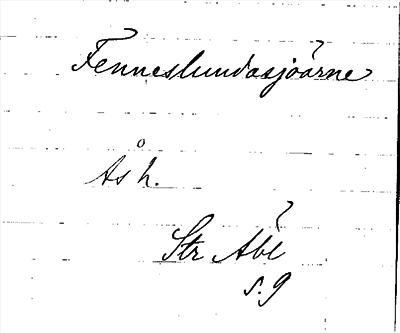 Fenneslundasjöarne
Ås h.
Str Åbl
s. 9